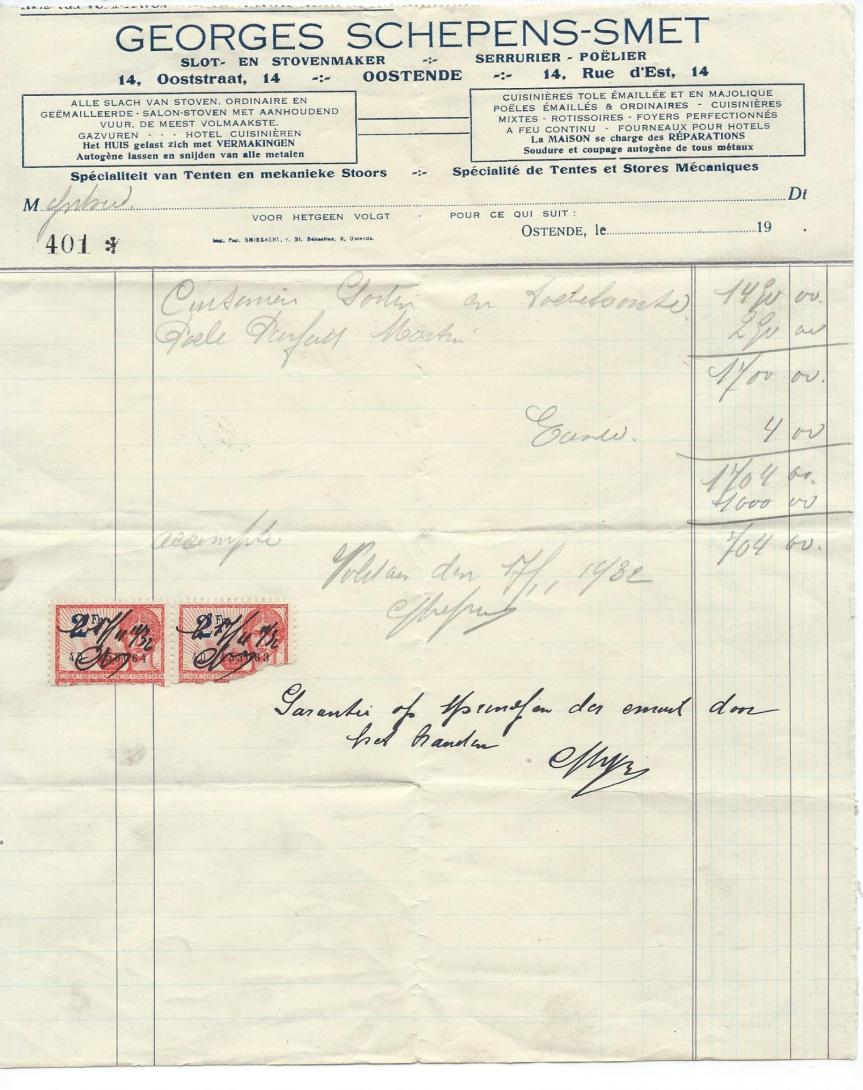 GEORGES SCHEPENS-SMET
SLOT- EN STOVENMAKER -:- SERRURIER - POËLIER
14, Ooststraat, 14 -:- OOSTENDE -:- 14, Rue d'Est, 14
ALLE SLACH VAN STOVEN, ORDINAIRE EN
GEËMAILLEERDE - SALON-STOVEN MET AANHOUDEND
VUUR, DE MEEST VOLMAAKSTE.
GAZVUREN - - - HOTEL CUISINIÈREN
Het HUIS gelast zich met VERMAKINGEN
Autogène lassen en snijden van alle metalen
CUISINIÈRES TOLE ÉMAILLÉE ET EN MAJOLIQUE
POËLES ÉMAILLÉS & ORDINAIRES - CUISINIÈRES
MIXTES - ROTISSOIRES - FOYERS PERFECTIONNÉS
A FEU CONTINU - FOURNEAUX POUR HOTELS
La MAISON se charge des RÉPARATIONS
Soudure et coupage autogène de tous métaux
Spécialiteit van Tenten en mekanieke Stoors -:- Spécialité de Tentes et Stores Mécaniques
M Dt
VOOR HETGEEN VOLGT - POUR CE QUI SUIT :
401 *
Imp. Pap. SMISSAERT, r. St. Sébastien, 6, Ostende.
OSTENDE, le 19 .
en 00
Martin
1700 00.
4 00
1704 00.
1000 00
accompte 704 00.
Voldaan den 17/ 1932
2 Fr
2 Fr
Garantie op springen der email door
het branden